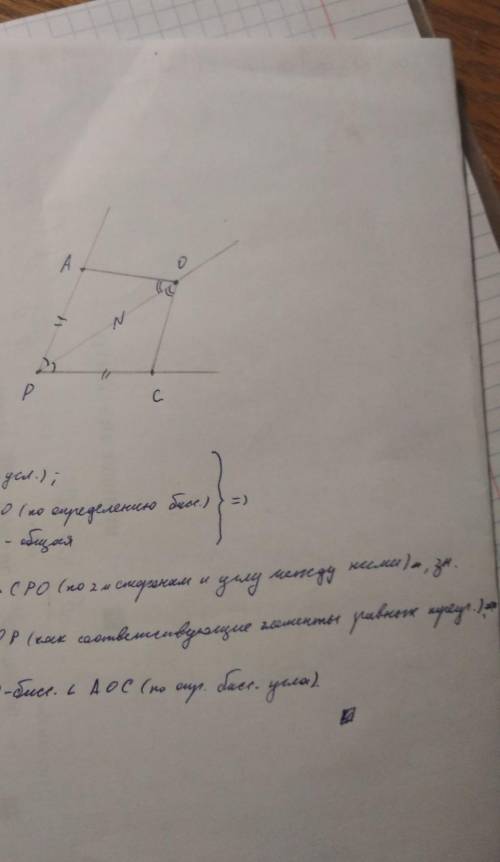 A
O
N
P
C
усл.);
O (по определению бис.)
- общая
=>
CPO (по 2м сторонам и углу между ними), зн.
OP (как соответствующие элементы равных треуг.),
-бисс. ∠ AOC (по опр. бисс. угла).